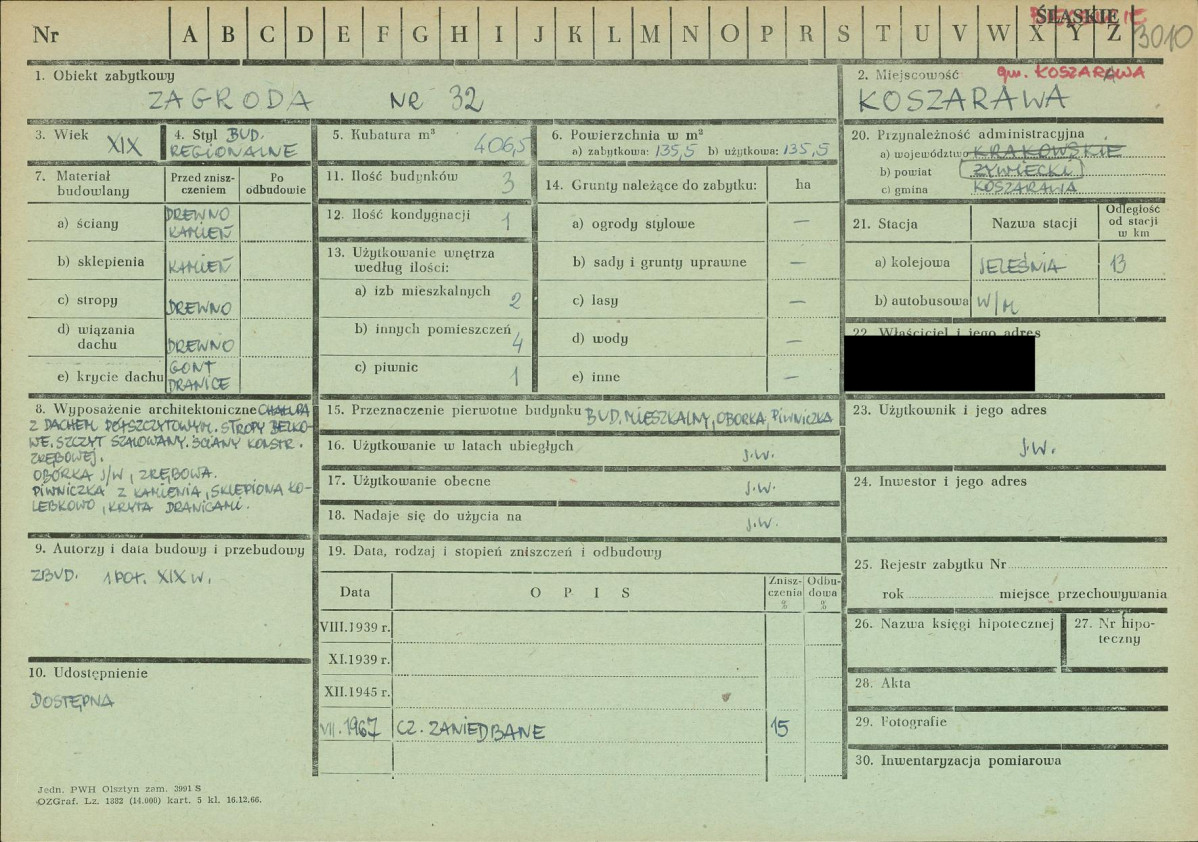 ŚLĄSKIE
Nr A B C D E F G H I J K L M N O P R S T U V W X Y Z 3010
1. Obiekt zabytkowy
ZAGRODA NR 32
2. Miejscowość gm. KOSZARAWA
KOSZARAWA
3. Wiek XIX
4. Styl BUD.
REGIONALNE
5. Kubatura m³
406,5
6. Powierzchnia w m²
a) zabytkowa: 135,5 b) użytkowa: 135,5
20. Przynależność administracyjna
a) województwo KRAKOWSKIE
b) powiat ŻYWIECKI
c) gmina KOSZARAWA
7. Materiał budowlany
Przed zniszczeniem
Po odbudowie
a) ściany DREWNO
KAMIEŃ
b) sklepienia KAMIEŃ
c) stropy DREWNO
d) wiązania dachu DREWNO
e) krycie dachu GONT
DRANICE
11. Ilość budynków 3
12. Ilość kondygnacji 1
13. Użytkowanie wnętrza według ilości:
a) izb mieszkalnych 2
b) innych pomieszczeń 4
c) piwnic 1
14. Grunty należące do zabytku: ha
a) ogrody stylowe —
b) sady i grunty uprawne —
c) lasy —
d) wody —
e) inne —
21. Stacja Nazwa stacji Odległość od stacji w km
a) kolejowa JELEŚNIA 13
b) autobusowa W/M
22. Właściciel i jego adres
8. Wyposażenie architektoniczne CHAŁUPA
Z DACHEM PÓŁSZCZYTOWYM. STROPY BELKO-
WE, SZCZYT SZALOWANY. ŚCIANY KONSTR.
ZRĘBOWEJ.
OBÓRKA J/W, ZRĘBOWA.
PIWNICZKA Z KAMIENIA, SKLEPIONA KO-
LEBKOWO, KRYTA DRANICAMI.
15. Przeznaczenie pierwotne budynku BUD. MIESZKALNY, OBORKA, PIWNICZKA
16. Użytkowanie w latach ubiegłych J.W.
17. Użytkowanie obecne J.W.
18. Nadaje się do użycia na J.W.
23. Użytkownik i jego adres
J.W.
24. Inwestor i jego adres
9. Autorzy i data budowy i przebudowy
ZBUD. 1 POŁ. XIX W.
10. Udostępnienie
DOSTĘPNA
19. Data, rodzaj i stopień zniszczeń i odbudowy
Data OPIS Zniszczenia % Odbudowa %
VIII.1939 r.
XI.1939 r.
XII.1945 r.
VII.1967 CZ. ZANIEDBANE 15
25. Rejestr zabytku Nr
rok miejsce przechowywania
26. Nazwa księgi hipotecznej
27. Nr hipoteczny
28. Akta
29. Fotografie
30. Inwentaryzacja pomiarowa
Jedn. PWH Olsztyn zam. 3991 S
OZGraf. Lz. 1382 (14.000) kart. 5 kl. 16.12.66.